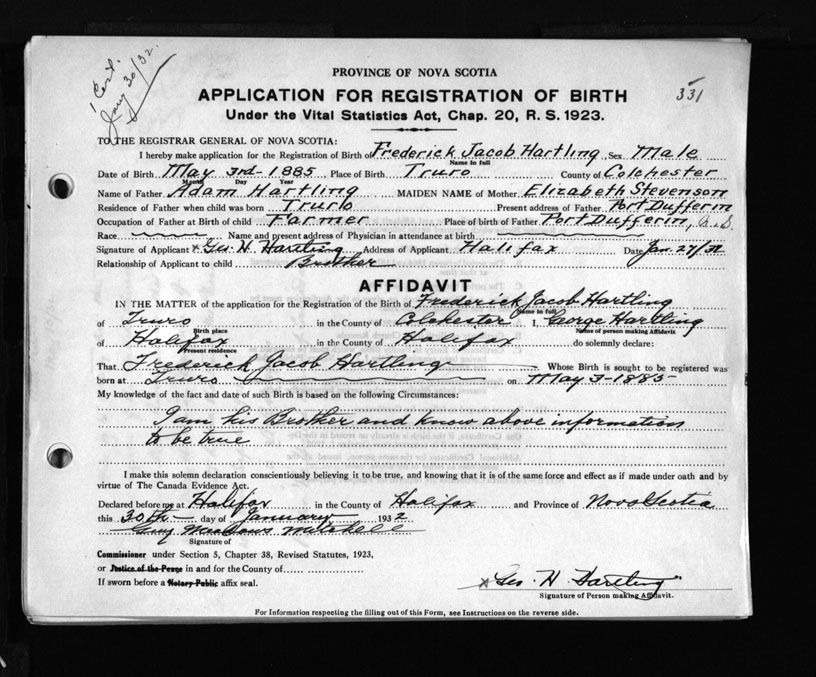 1 Cert.
Jany 30/32.
PROVINCE OF NOVA SCOTIA
APPLICATION FOR REGISTRATION OF BIRTH
331
Under the Vital Statistics Act, Chap. 20, R. S. 1923.
TO THE REGISTRAR GENERAL OF NOVA SCOTIA:
I hereby make application for the Registration of Birth of Frederick Jacob Hartling Sex Male
Name in full
Date of Birth May 3rd-1885 Place of Birth Truro County of Colchester
Month Day Year
Name of Father Adam Hartling MAIDEN NAME of Mother Elizabeth Stevenson
Residence of Father when child was born Truro Present address of Father Port Dufferin
Occupation of Father at Birth of child Farmer Place of birth of Father Port Dufferin,
Race Name and present address of Physician in attendance at birth
Signature of Applicant Geo. H. Hartling Address of Applicant Halifax Date Jan. 27/32
Relationship of Applicant to child Brother
AFFIDAVIT
IN THE MATTER of the application for the Registration of the Birth of Frederick Jacob Hartling
Name in full
of Truro in the County of Colchester I, George Hartling
Birth place Name of person making Affidavit
of Halifax in the County of Halifax do solemnly declare:
Present residence
That Frederick Jacob Hartling Whose Birth is sought to be registered was
born at Truro on May 3-1885
My knowledge of the fact and date of such Birth is based on the following Circumstances:
I am his Brother and know above information
to be true
I make this solemn declaration conscientiously believing it to be true, and knowing that it is of the same force and effect as if made under oath and by
virtue of The Canada Evidence Act.
Declared before me at Halifax in the County of Halifax and Province of Nova Scotia
this 30th day of January 1932
Guy Meadows Mitchell
Signature of
Commissioner under Section 5, Chapter 38, Revised Statutes, 1923,
or Justice of the Peace in and for the County of
If sworn before a Notary Public affix seal.
x Geo. H. Hartling
Signature of Person making Affidavit.
For Information respecting the filling out of this Form, see Instructions on the reverse side.